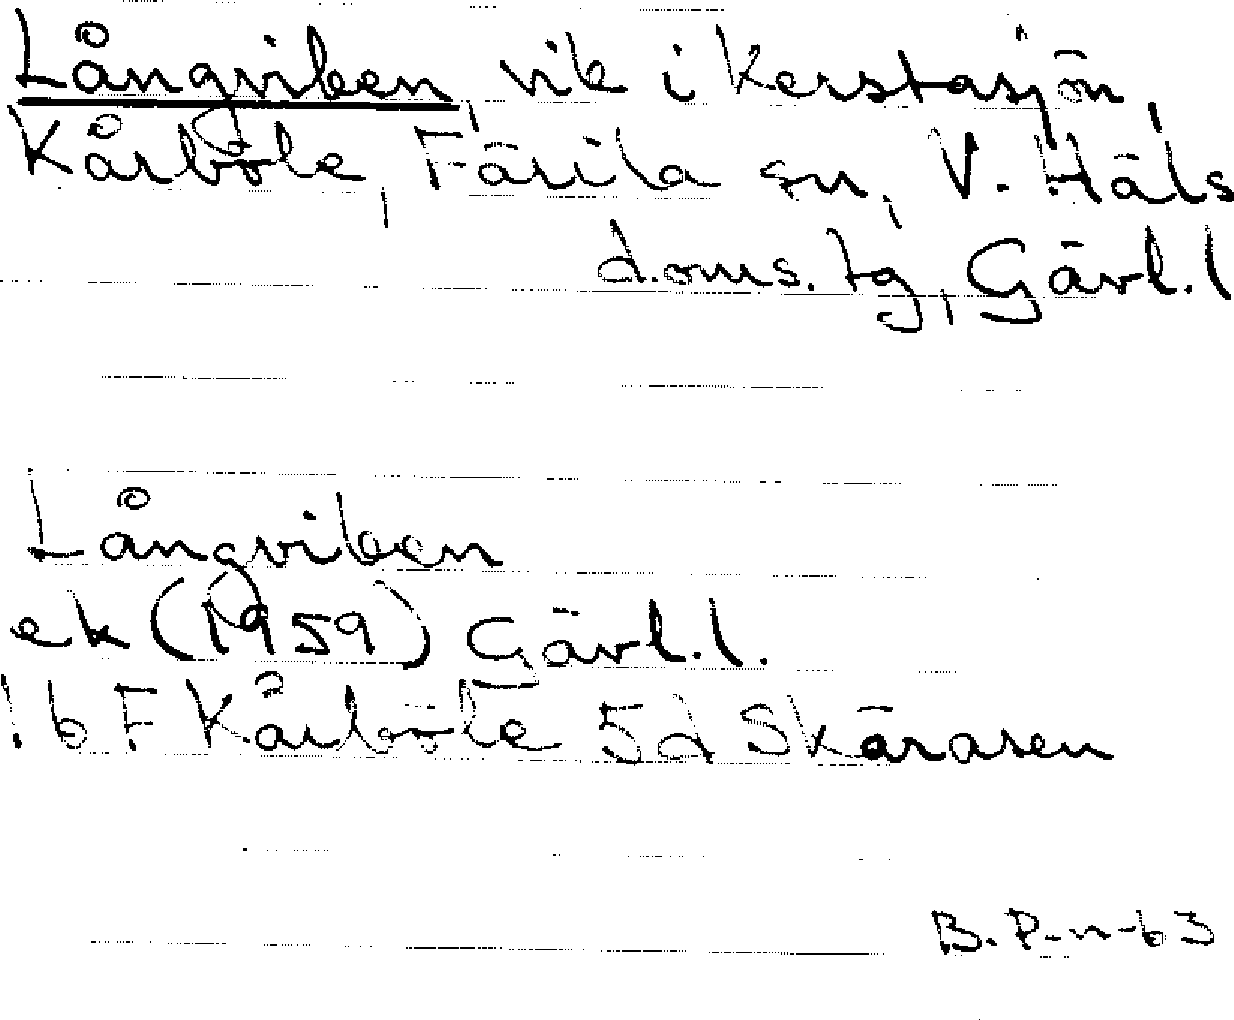 Långviken, vik i Kerstasjön,
Kårböle, Färila sn, V. Häls
d.oms. tg, Gävl. l
Långviken
ek (1959) Gävl. l.
16 F Kårböle 5d Skärasen
B. P-n-63